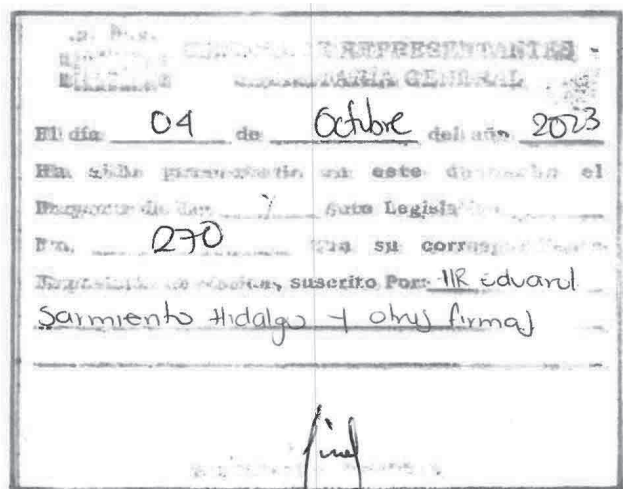 CAMARA DE REPRESENTANTES
SECRETARÍA GENERAL
El día 04 de Octubre del año 2023
Ha sido presentado en este despacho el
Proyecto de Ley X Acto Legislativo
No. 270 Con su correspondiente
Exposición de Motivos, suscrito Por: HR Eduard
Sarmiento Hidalgo y otras firmas